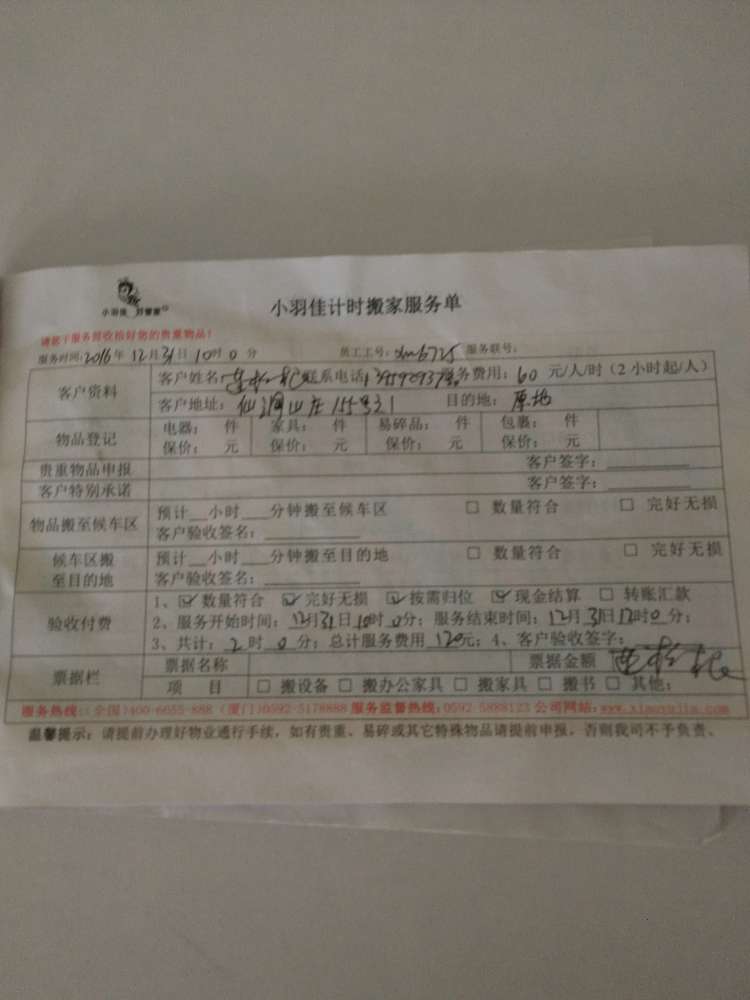 小羽佳 好管家
小羽佳计时搬家服务单
请您于服务前收捡好您的贵重物品！
服务时间：2016年12月31日10时0分 员工工号：xm6725 服务联号：
客户资料 客户姓名： 联系电话： 服务费用：60元/人/时（2小时起/人）
客户地址：仙洞山庄155号 目的地：原地
物品登记 电器： 件 家具： 件 易碎品： 件 包裹： 件
保价： 元 保价： 元 保价： 元 保价： 元
贵重物品申报 客户签字：
客户特别承诺 客户签字：
物品搬至候车区 预计__小时___分钟搬至候车区 □ 数量符合 □ 完好无损
客户验收签名：
候车区搬 预计__小时___分钟搬至目的地 □ 数量符合 □ 完好无损
至目的地 客户验收签名：
验收付费 1、☑数量符合 ☑完好无损 ☑按需归位 ☑现金结算 □ 转账汇款
2、服务开始时间：12月31日10时0分；服务结束时间：12月31日12时0分；
3、共计：2时0分；总计服务费用120元；4、客户验收签字：
票据栏 票据名称 票据金额
项 目 □ 搬设备 □ 搬办公家具 □ 搬家具 □ 搬书 □ 其他：
服务热线：（全国）400-6055-888（厦门）0592-5178888 服务监督热线：0592-5888123 公司网站：www.xiaoyujia.com
温馨提示：请提前办理好物业通行手续，如有贵重、易碎或其它特殊物品请提前申报，否则我司不予负责。